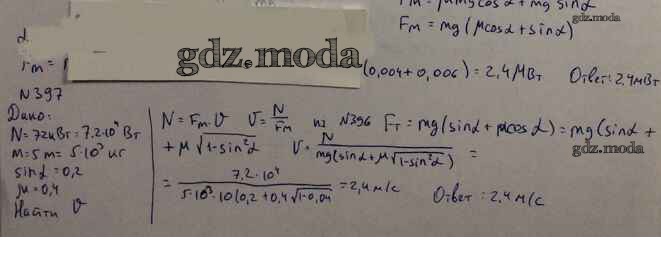 Fт = μmg cosα + mg sinα
Fм = mg(μcosα + sinα)
gdz.moda
gdz.moda
(0,004+0,006) = 2,4 МВт Ответ: 2,4мВт
N397
Дано:
N=72кВт=7,2·10⁴ Вт
m=5 т= 5·10³ кг
sinα =0,2
μ=0,4
Найти V
N = Fм·V V= N/Fм из N396 Fт = mg(sinα + μcosα)=mg(sinα +
+ μ√1-sin²α V= N/mg(sinα+μ√1-sin²α) =
gdz.moda
= 7,2·10⁴/5·10³·10(0,2+0,4√1-0,04 =2,4м/с Ответ: 2,4 м/с